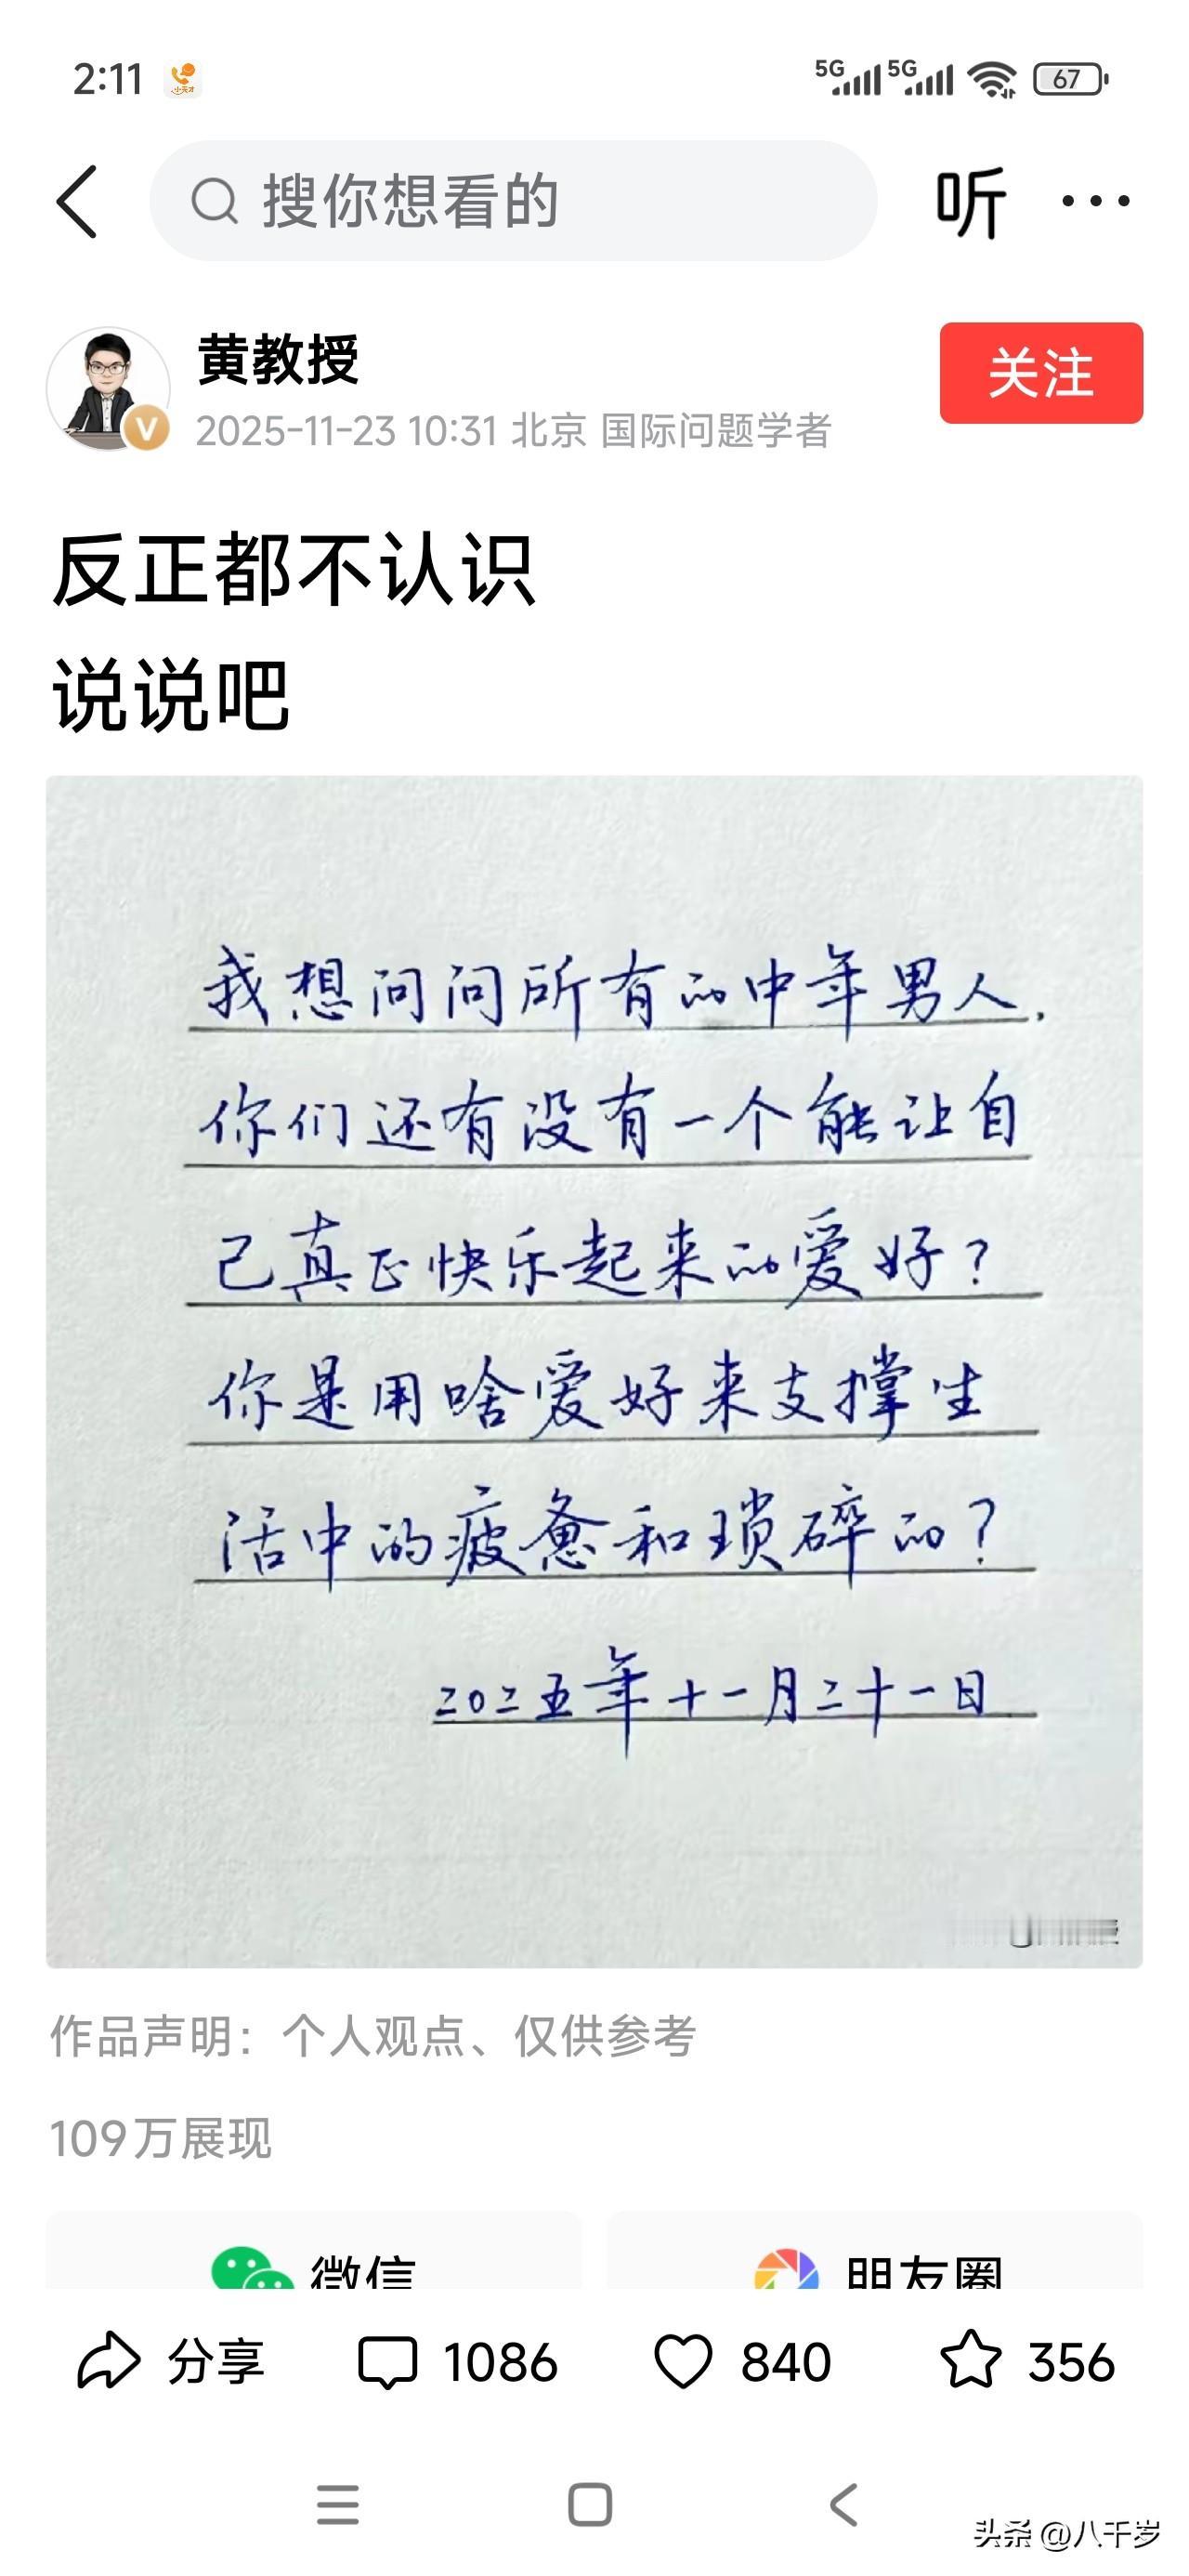 2:11
小天才
5G 5G 67
搜你想看的
听
黄教授
V
2025-11-23 10:31 北京 国际问题学者
关注
反正都不认识
说说吧
我想问问所有的中年男人.
你们还有没有一个能让自
己真正快乐起来的爱好?
你是用啥爱好来支撑生
活中的疲惫和琐碎的?
二0二五年十一月二十一日
作品声明：个人观点、仅供参考
109万展现
微信
朋友圈
分享
1086
840
356
头条 @八千岁